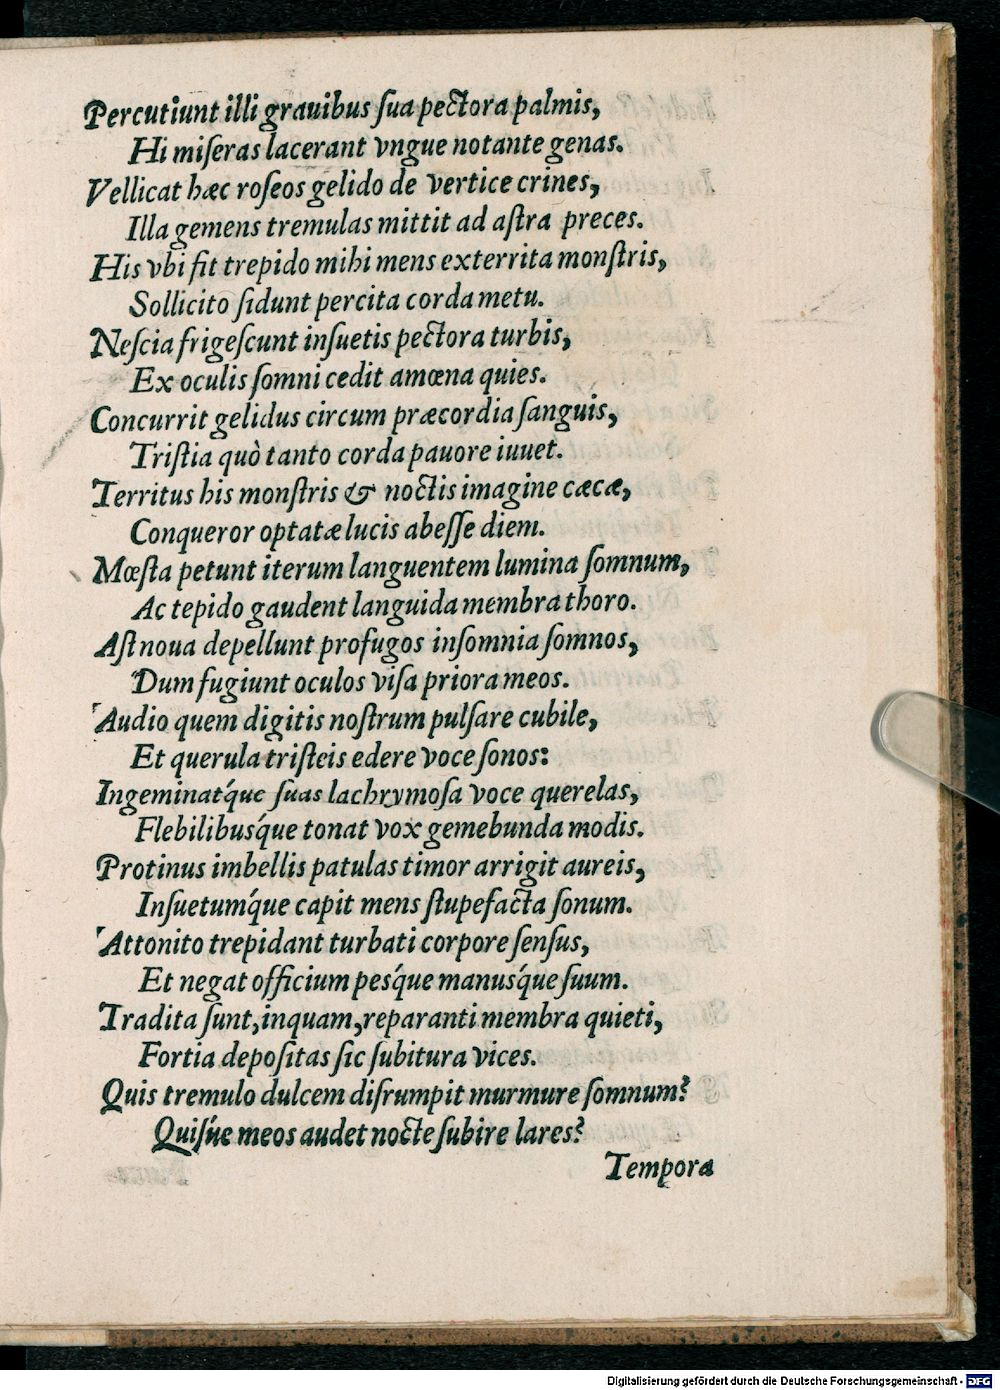 Percutiunt illi grauibus ſua pectora palmis,
Hi miſeras lacerant vngue notante genas.
Vellicat hæc roſeos gelido de vertice crines,
Illa gemens tremulas mittit ad aſtra preces.
His vbi fit trepido mihi mens exterrita monſtris,
Sollicito ſidunt percita corda metu.
Neſcia frigeſcunt inſuetis pectora turbis,
Ex oculis ſomni cedit amœna quies.
Concurrit gelidus circum præcordia ſanguis,
Triſtia quò tanto corda pauore iuuet.
Territus his monſtris & noctis imagine cæcæ,
Conqueror optatæ lucis abeſſe diem.
Mœſta petunt iterum languentem lumina ſomnum,
Ac tepido gaudent languida membra thoro.
Aſt noua depellunt profugos inſomnia ſomnos,
Dum fugiunt oculos viſa priora meos.
Audio quem digitis noſtrum pulſare cubile,
Et querula triſteis edere voce ſonos:
Ingeminat´que ſuas lachrymoſa voce querelas,
Flebilibus´que tonat vox gemebunda modis.
Protinus imbellis patulas timor arrigit aureis,
Inſuetum´que capit mens ſtupefacta ſonum.
Attonito trepidant turbati corpore ſenſus,
Et negat officium pes´que manus´que ſuum.
Tradita ſunt, inquam, reparanti membra quieti,
Fortia depoſitas ſic ſubitura vices.
Quis tremulo dulcem diſrumpit murmure ſomnum?
Quiſúe meos audet nocte ſubire lares?
Tempora
Digitalisierung gefördert durch die Deutsche Forschungsgemeinschaft - DFG